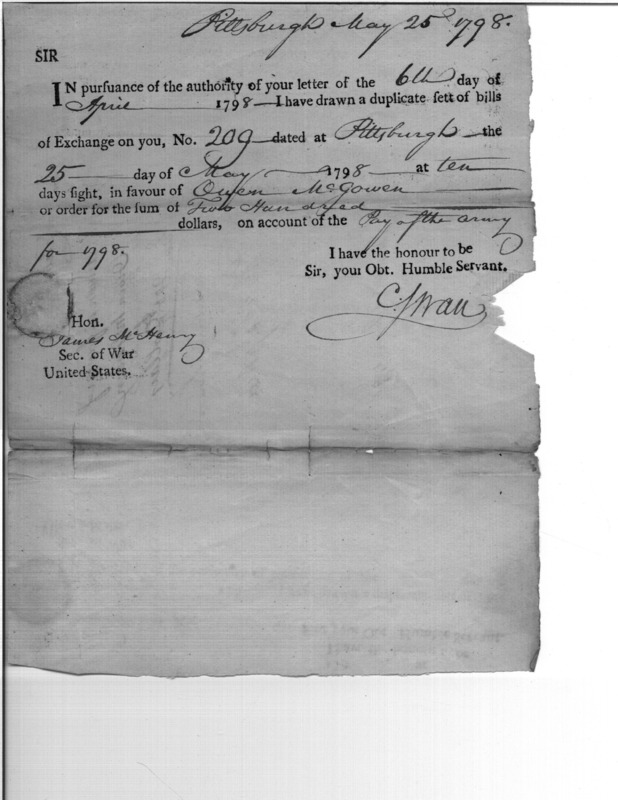 Pittsburgh May 25th 1798.
SIR
IN pursuance of the authority of your letter of the 6th day of
April 1798 I have drawn a duplicate sett of bills
of Exchange on you, No. 209 dated at Pittsburgh the
25 day of May 1798 at ten
days sight, in favour of Owen McGowen
or order for the sum of Two Hundred
dollars, on account of the Pay of the army
for 1798.
I have the honour to be
Sir, your Obt. Humble Servant.
C. Swan
Hon.
James McHenry
Sec. of War
United States.